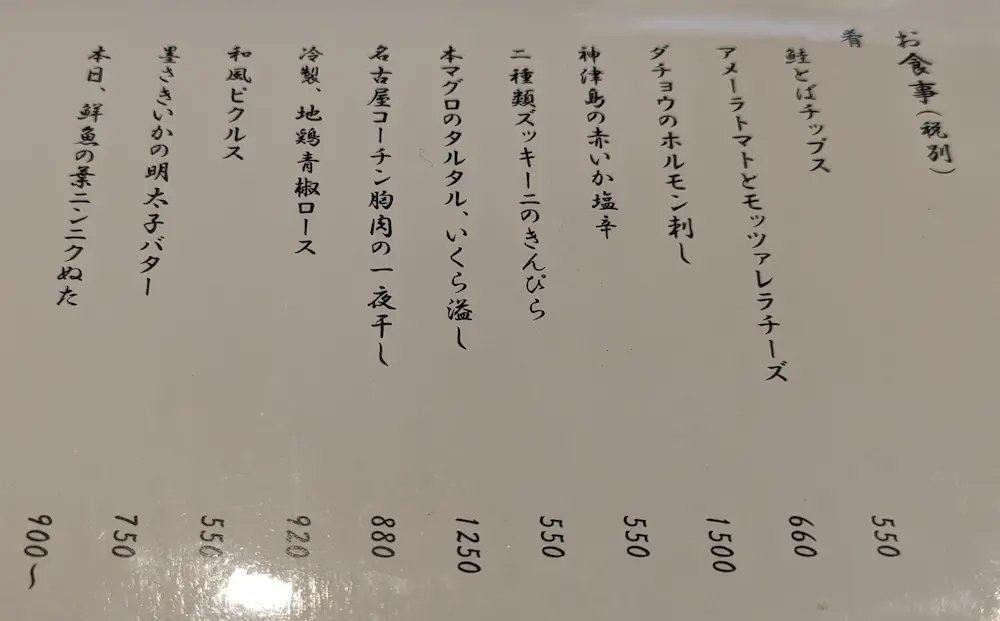 お食事(税別)
肴
鮭とばチップス 550
アメーラトマトとモッツァレラチーズ 660
ダチョウのホルモン刺し 1500
神津島の赤いか塩辛 550
二種類ズッキーニのきんぴら 550
本マグロのタルタル、いくら溢し 1250
名古屋コーチン胸肉の一夜干し 880
冷製、地鶏青椒ロース 920
和風ピクルス 550
墨さきいかの明太子バター 750
本日、鮮魚の葉ニンニクぬた 900〜